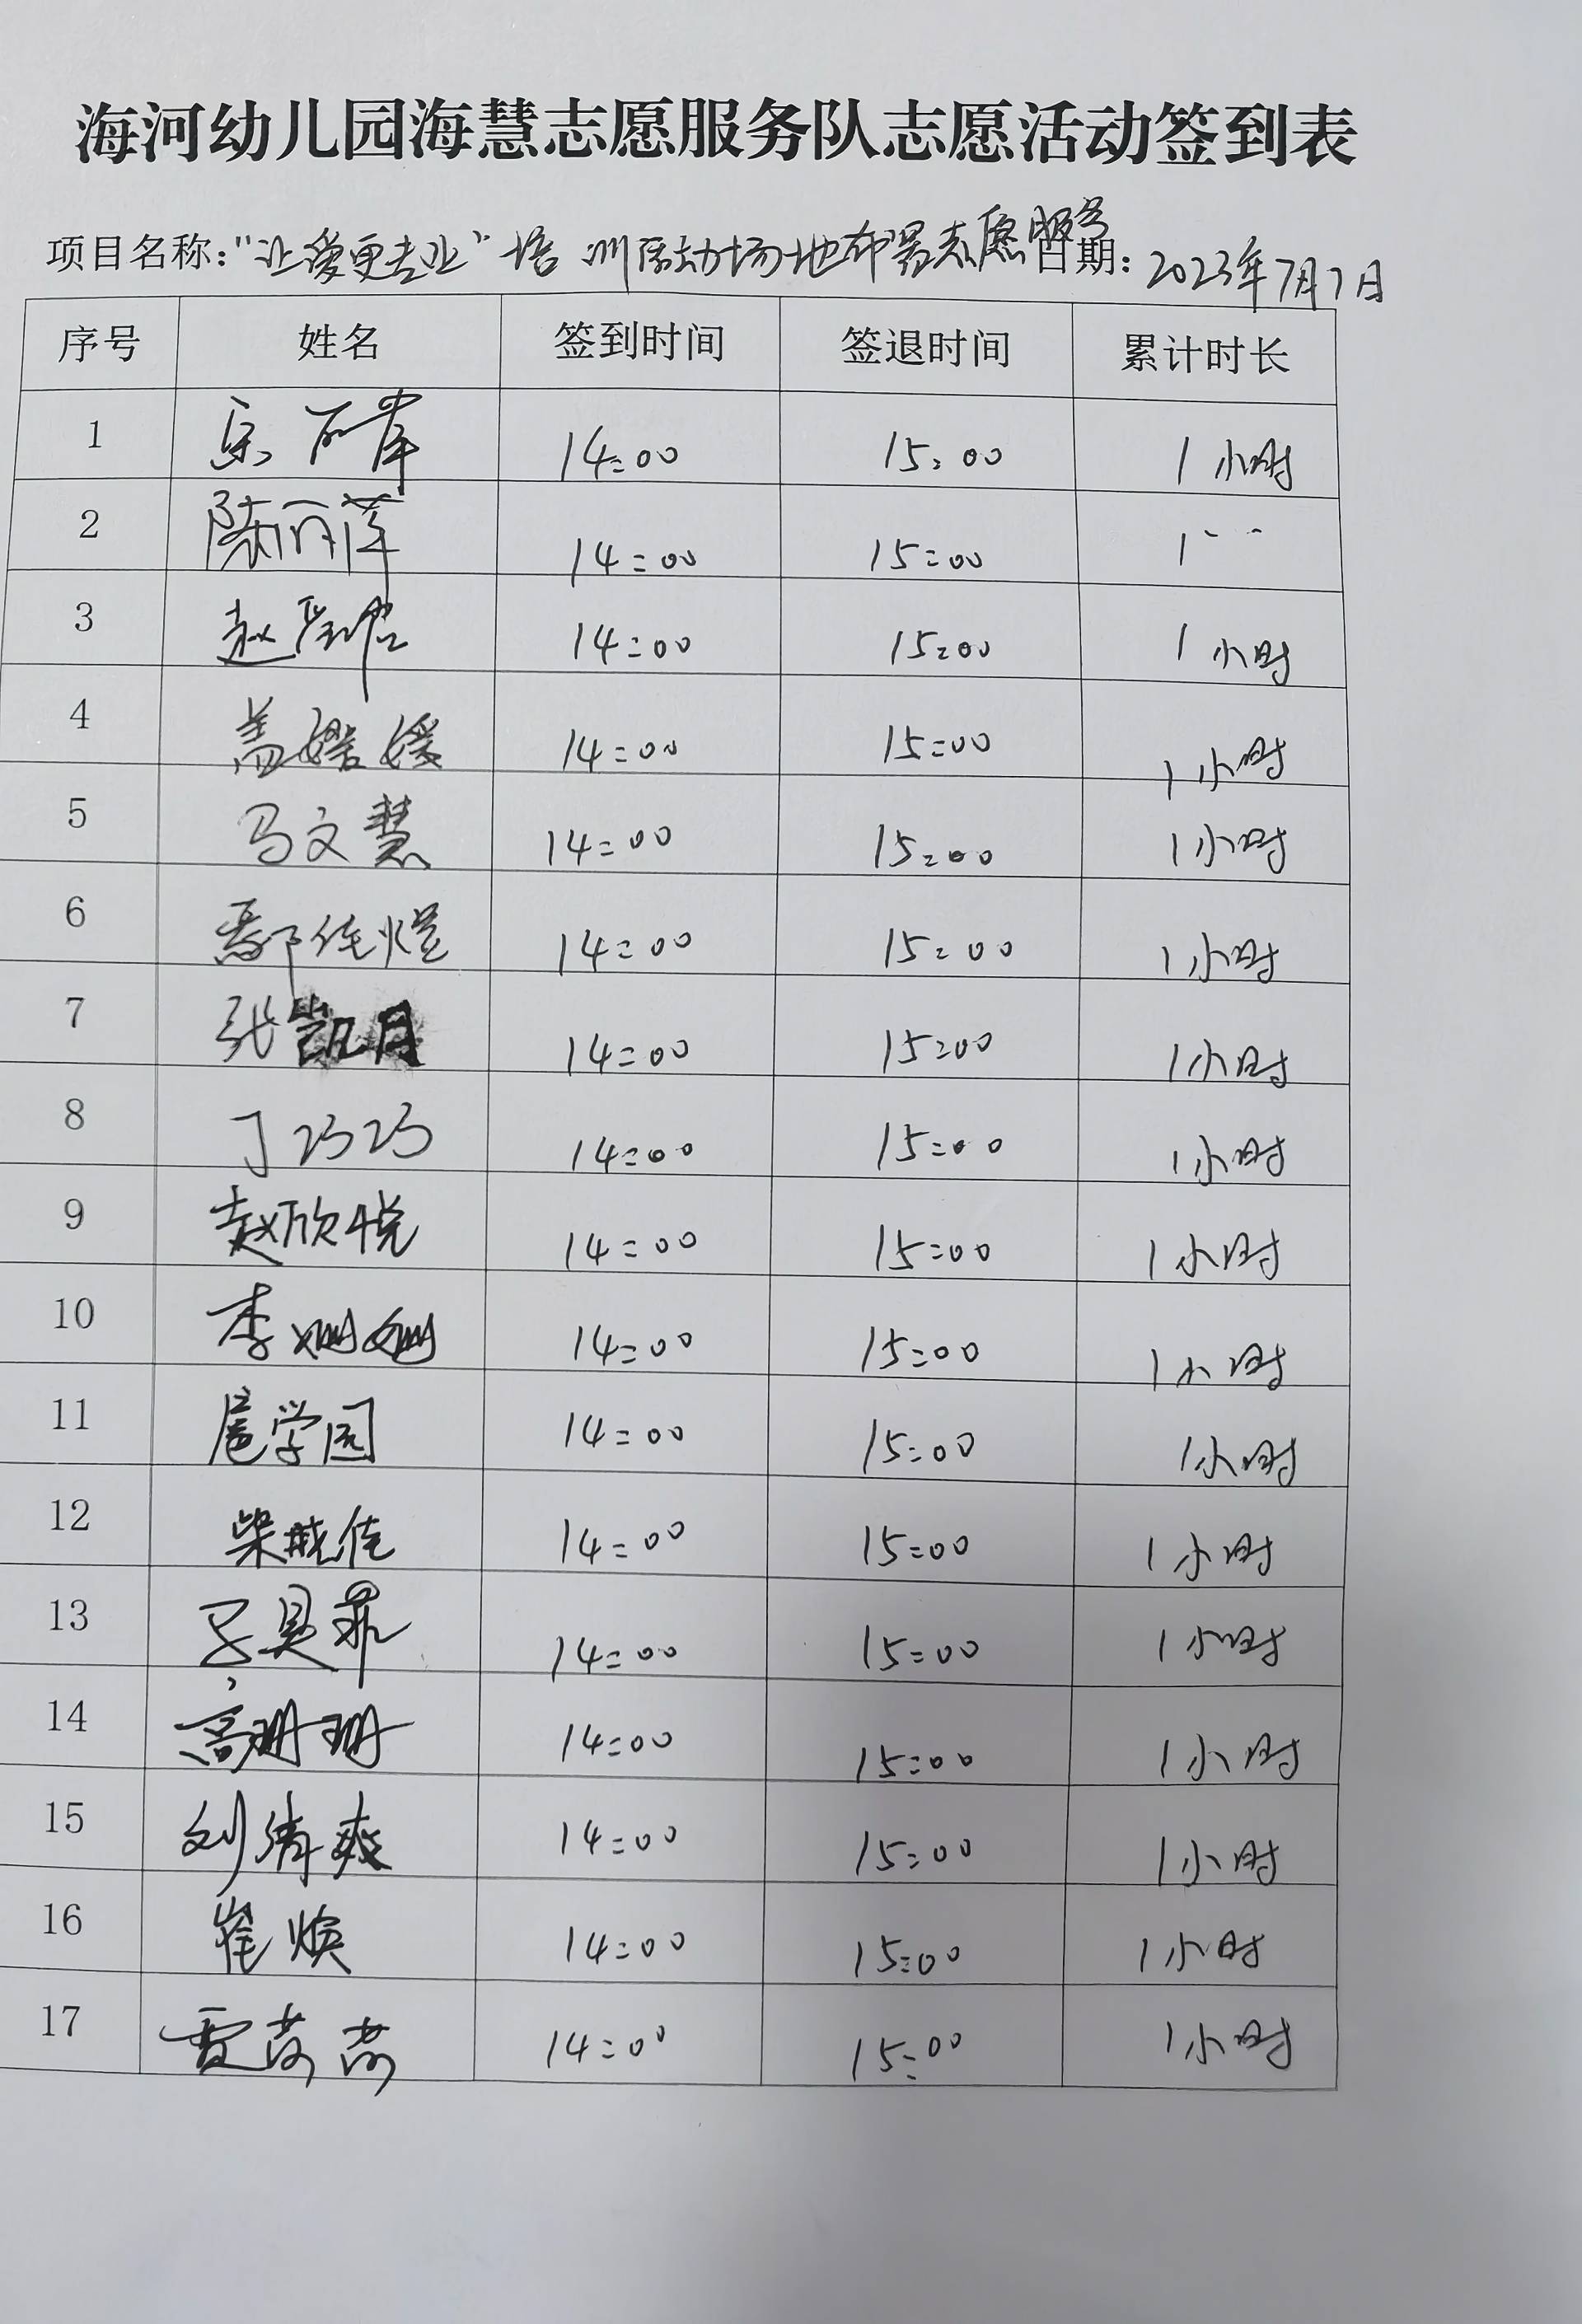 海河幼儿园海慧志愿服务队志愿活动签到表
项目名称:“让爱更专业”培训活动场地布置志愿服务 日期: 2023年7月7日
序号 姓名 签到时间 签退时间 累计时长
1 14:00 15:00 1小时
2 陈丽萍 14:00 15:00 1 〃
3 赵 14:00 15:00 1小时
4 盖 媛 14:00 15:00 1小时
5 马文慧 14:00 15:00 1小时
6 鄢佳煜 14:00 15:00 1小时
7 张凯月 14:00 15:00 1小时
8 丁巧巧 14:00 15:00 1小时
9 赵欣悦 14:00 15:00 1小时
10 李姗姗 14:00 15:00 1小时
11 扈学园 14:00 15:00 1小时
12 柴晓佳 14:00 15:00 1小时
13 14:00 15:00 1小时
14 高珊珊 14:00 15:00 1小时
15 刘清爽 14:00 15:00 1小时
16 崔焕 14:00 15:00 1小时
17 贾茜茜 14:00 15:00 1小时